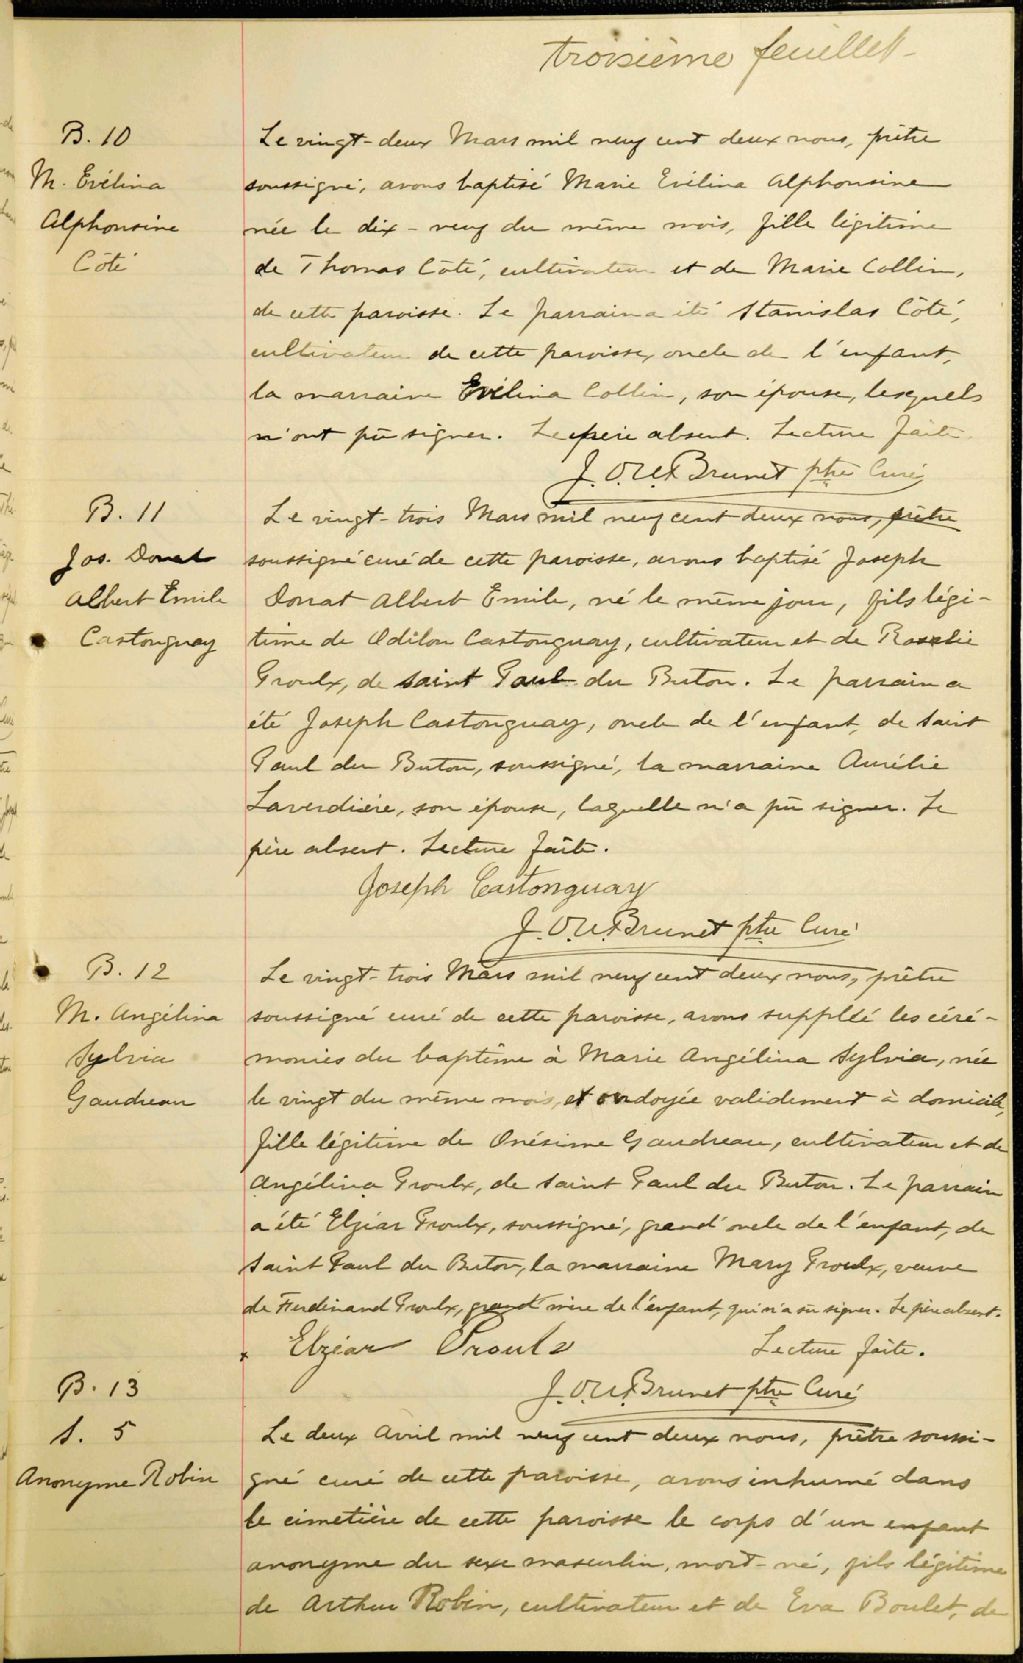 troisième feuillet
B. 10
M. Evélina
Alphonsine
Côté
Le vingt-deux Mars mil neuf cent deux nous, prêtre
soussigné, avons baptisé Marie Evélina Alphonsine
née le dix-neuf du même mois, fille légitime
de Thomas Côté, cultivateur et de Marie Collin,
de cette paroisse. Le parrain a été Stanislas Côté,
cultivateur de cette paroisse, oncle de l'enfant,
la marraine Evélina Collin, son épouse, lesquels
n'ont pu signer. Le père absent. Lecture faite.
J. O. U. Brunet ptre Curé
B. 11
Jos. Donat
Albert Emile
Castonguay
Le vingt-trois Mars mil neuf cent deux nous, prêtre
soussigné curé de cette paroisse, avons baptisé Joseph
Donat Albert Emile, né le même jour, fils légi-
time de Odilon Castonguay, cultivateur et de Rosalie
Proulx, de saint Paul du Buton. Le parrain a
été Joseph Castonguay, oncle de l'enfant, de saint
Paul du Buton, soussigné, la marraine Aurélie
Laverdière, son épouse, laquelle n'a pu signer. Le
père absent. Lecture faite.
Joseph Castonguay
J. O. U. Brunet ptre Curé
B. 12
M. Angélina
Sylvia
Gaudreau
Le vingt-trois Mars mil neuf cent deux nous, prêtre
soussigné curé de cette paroisse, avons suppléé les céré-
monies du baptême à Marie Angélina Sylvia, née
le vingt du même mois, et ondoyée validement à domicile,
fille légitime de Onésime Gaudreau, cultivateur et de
Angélina Proulx, de saint Paul du Buton. Le parrain
a été Elzéar Proulx, soussigné, grand'oncle de l'enfant, de
saint Paul du Buton, la marraine Mary Proulx, veuve
de Ferdinand Proulx, grand'mère de l'enfant, qui n'a su signer. Le père absent.
x Elzéar Proulx Lecture faite.
J. O. U. Brunet ptre Curé
B. 13
S. 5
Anonyme Robin
Le deux Avril mil neuf cent deux nous, prêtre soussi-
gné curé de cette paroisse, avons inhumé dans
le cimetière de cette paroisse le corps d'un enfant
anonyme du sexe masculin, mort-né, fils légitime
de Arthur Robin, cultivateur et de Eva Boulet, de